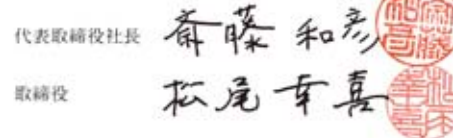 代表取締役社長 斎藤和彦
取締役 松尾幸喜